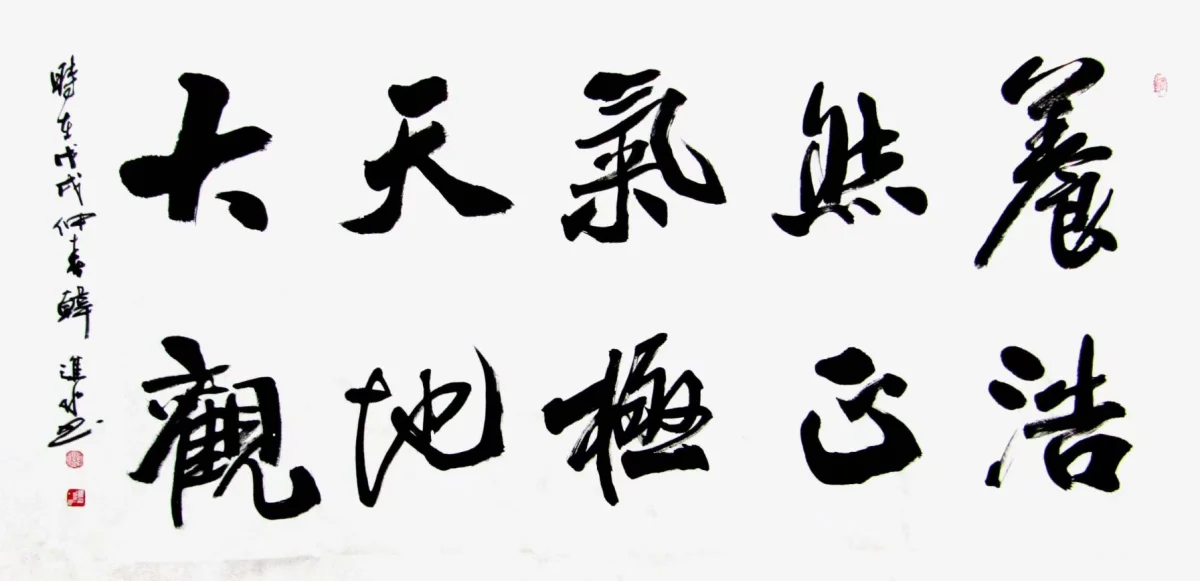 養浩
然正
氣極
天地
大觀
時在戊戌仲春韓進水書